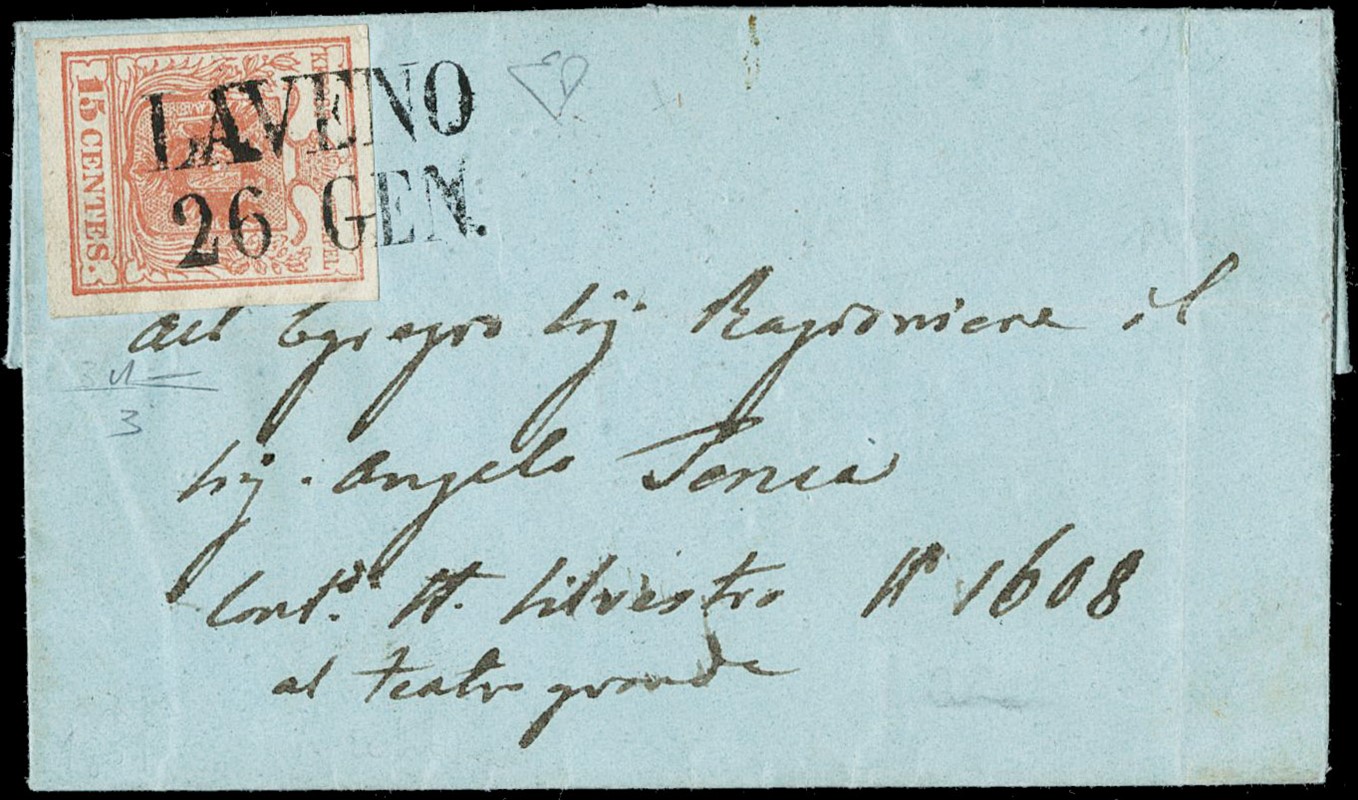 15 CENTES.
LAVENO
26 GEN.
All Egregio Sig Ragioniere il
Sig. Angelo
Cont.a S. Silvestro N 1608
al Teatro grande
3